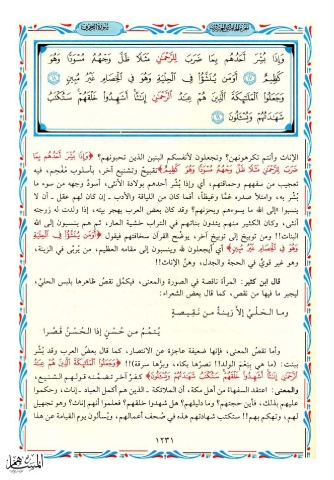 وَإِذَا بُشِّرَ أَحَدُهُم بِمَا ضَرَبَ لِلرَّحْمَٰنِ مَثَلًا ظَلَّ وَجْهُهُ مُسْوَدًّا وَهُوَ
كَظِيمٌ ﴿١٧﴾ أَوَمَن يُنَشَّؤُا۟ فِي الْحِلْيَةِ وَهُوَ فِي الْخِصَامِ غَيْرُ مُبِينٍ ﴿١٨﴾
وَجَعَلُوا الْمَلَائِكَةَ الَّذِينَ هُمْ عِبَادُ الرَّحْمَٰنِ إِنَاثًا أَشَهِدُوا خَلْقَهُمْ سَتُكْتَبُ
شَهَادَتُهُمْ وَيُسْأَلُونَ ﴿١٩﴾
الإناث وأنتم تكرهونهن؟ وتجعلون لأنفسكم البنين الذين تحبونهم؟ ﴿وَإِذَا بُشِّرَ أَحَدُهُم بِمَا
ضَرَبَ لِلرَّحْمَٰنِ مَثَلًا ظَلَّ وَجْهُهُ مُسْوَدًّا وَهُوَ كَظِيمٌ﴾ تقبيح وتشنيع آخر، بأسلوب مُفْحِم، فيه
تعجيب من سفههم وحماقتهم، أي وإذا بُشِّر أحدهم بولادة الأنثى، اسودَّ وجهه من سوء ما
بُشِّر به، وامتلأ صدره غمًّا وغيظاً، أفما كان من اللياقة والأدب ـ إن كان لهم عقل ـ أن لا
ينسبوا إلى الله ما يسوءهم ويحزنهم؟ وقد كان بعض العرب يهجر بيته، إذا ولدت له زوجته
أنثى، وكان الكثير منهم يئدون بناتهم في التراب خشية العار، ثم هم ينسبون إلى الله
البنات!! ومن توبيخ إلى توبيخ آخر، يوضِّح القرآن سخافتهم فيقول ﴿أَوَمَن يُنَشَّؤُا۟ فِي الْحِلْيَةِ
وَهُوَ فِي الْخِصَامِ غَيْرُ مُبِينٍ﴾ أي أيجعلون لله وينسبون إلى مقامه العظيم، من يُربَّى في الزينة،
وهو غير قويٍّ في الحجة والجدل، وهنَّ الإناث!!
قال ابن كثير: المرأة ناقصة في الصورة والمعنى، فيكمَّل نقص ظاهرها بلبس الحليِّ،
ليجبر ما فيها من نقص، كما قال بعض الشعراء:
وما الحَلْيُ إلا زينةٌ من نقيصةٍ
يُتمِّمُ من حُسْنٍ إذا الحُسْنُ قصَّرا
وأما نقصُ المعنى، فإنها ضعيفة عاجزة عن الانتصار، كما قال بعض العرب وقد بُشِّر
ببنت: (ما هي بنعم الولد!! نصرُها بكاء، وبرُّها سرقة)!! ﴿وَجَعَلُوا الْمَلَائِكَةَ الَّذِينَ هُمْ عِبَادُ
الرَّحْمَٰنِ إِنَاثًا أَشَهِدُوا خَلْقَهُمْ سَتُكْتَبُ شَهَادَتُهُمْ وَيُسْأَلُونَ﴾ كفر آخر تضمَّنه قولهم الشنيع،
والمعنى: اعتقد السفهاء من أهل مكة، أن الملائكة ـ الذين هم أكمل العباد ـ إناث، وحكموا
عليهم بذلك، فأين حجتهم؟ وما دليلهم؟ هل شهدوا خلقهم؟ فعلموا أنهم إناث؟ وهو تجهيل
لهم، وتهكم بهم!! ستكتب شهادتهم هذه في صُحف أعمالهم، ويُسألون يوم القيامة عن هذا
١٢٣١